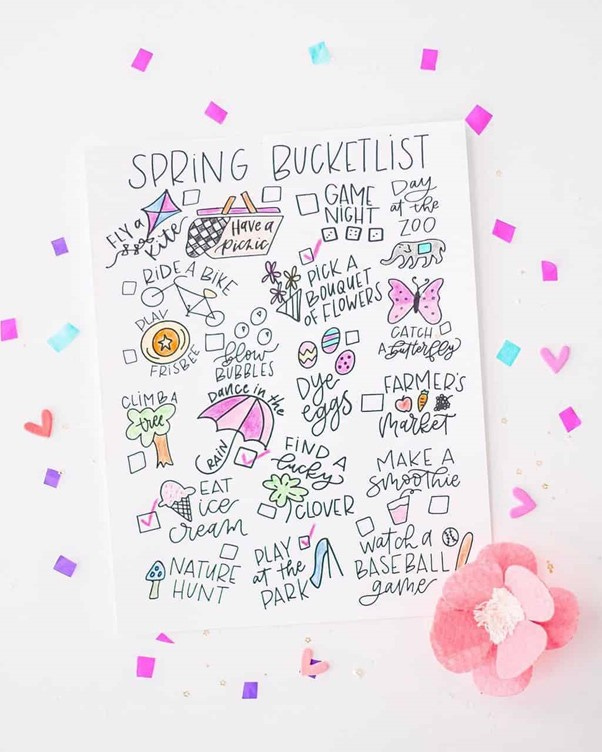 SPRING BUCKETLIST
FLY a
Kite
Have a
picnic
GAME
NIGHT
Day
at the
ZOO
RIDE A BIKE
PICK A
BOUQUET
OF FLOWERS
PLAY
FRISBEE
blow
BUBBLES
CATCH
A butterfly
DYe
eggs
FARMER'S
market
CLIMB A
tree
DANCE in the
RAIN
FIND A
lucky
CLOVER
MAKE A
smoothie
EAT
ice
cream
NATURE
HUNT
PLAY
at the
PARK
watch a
BASEBALL
game